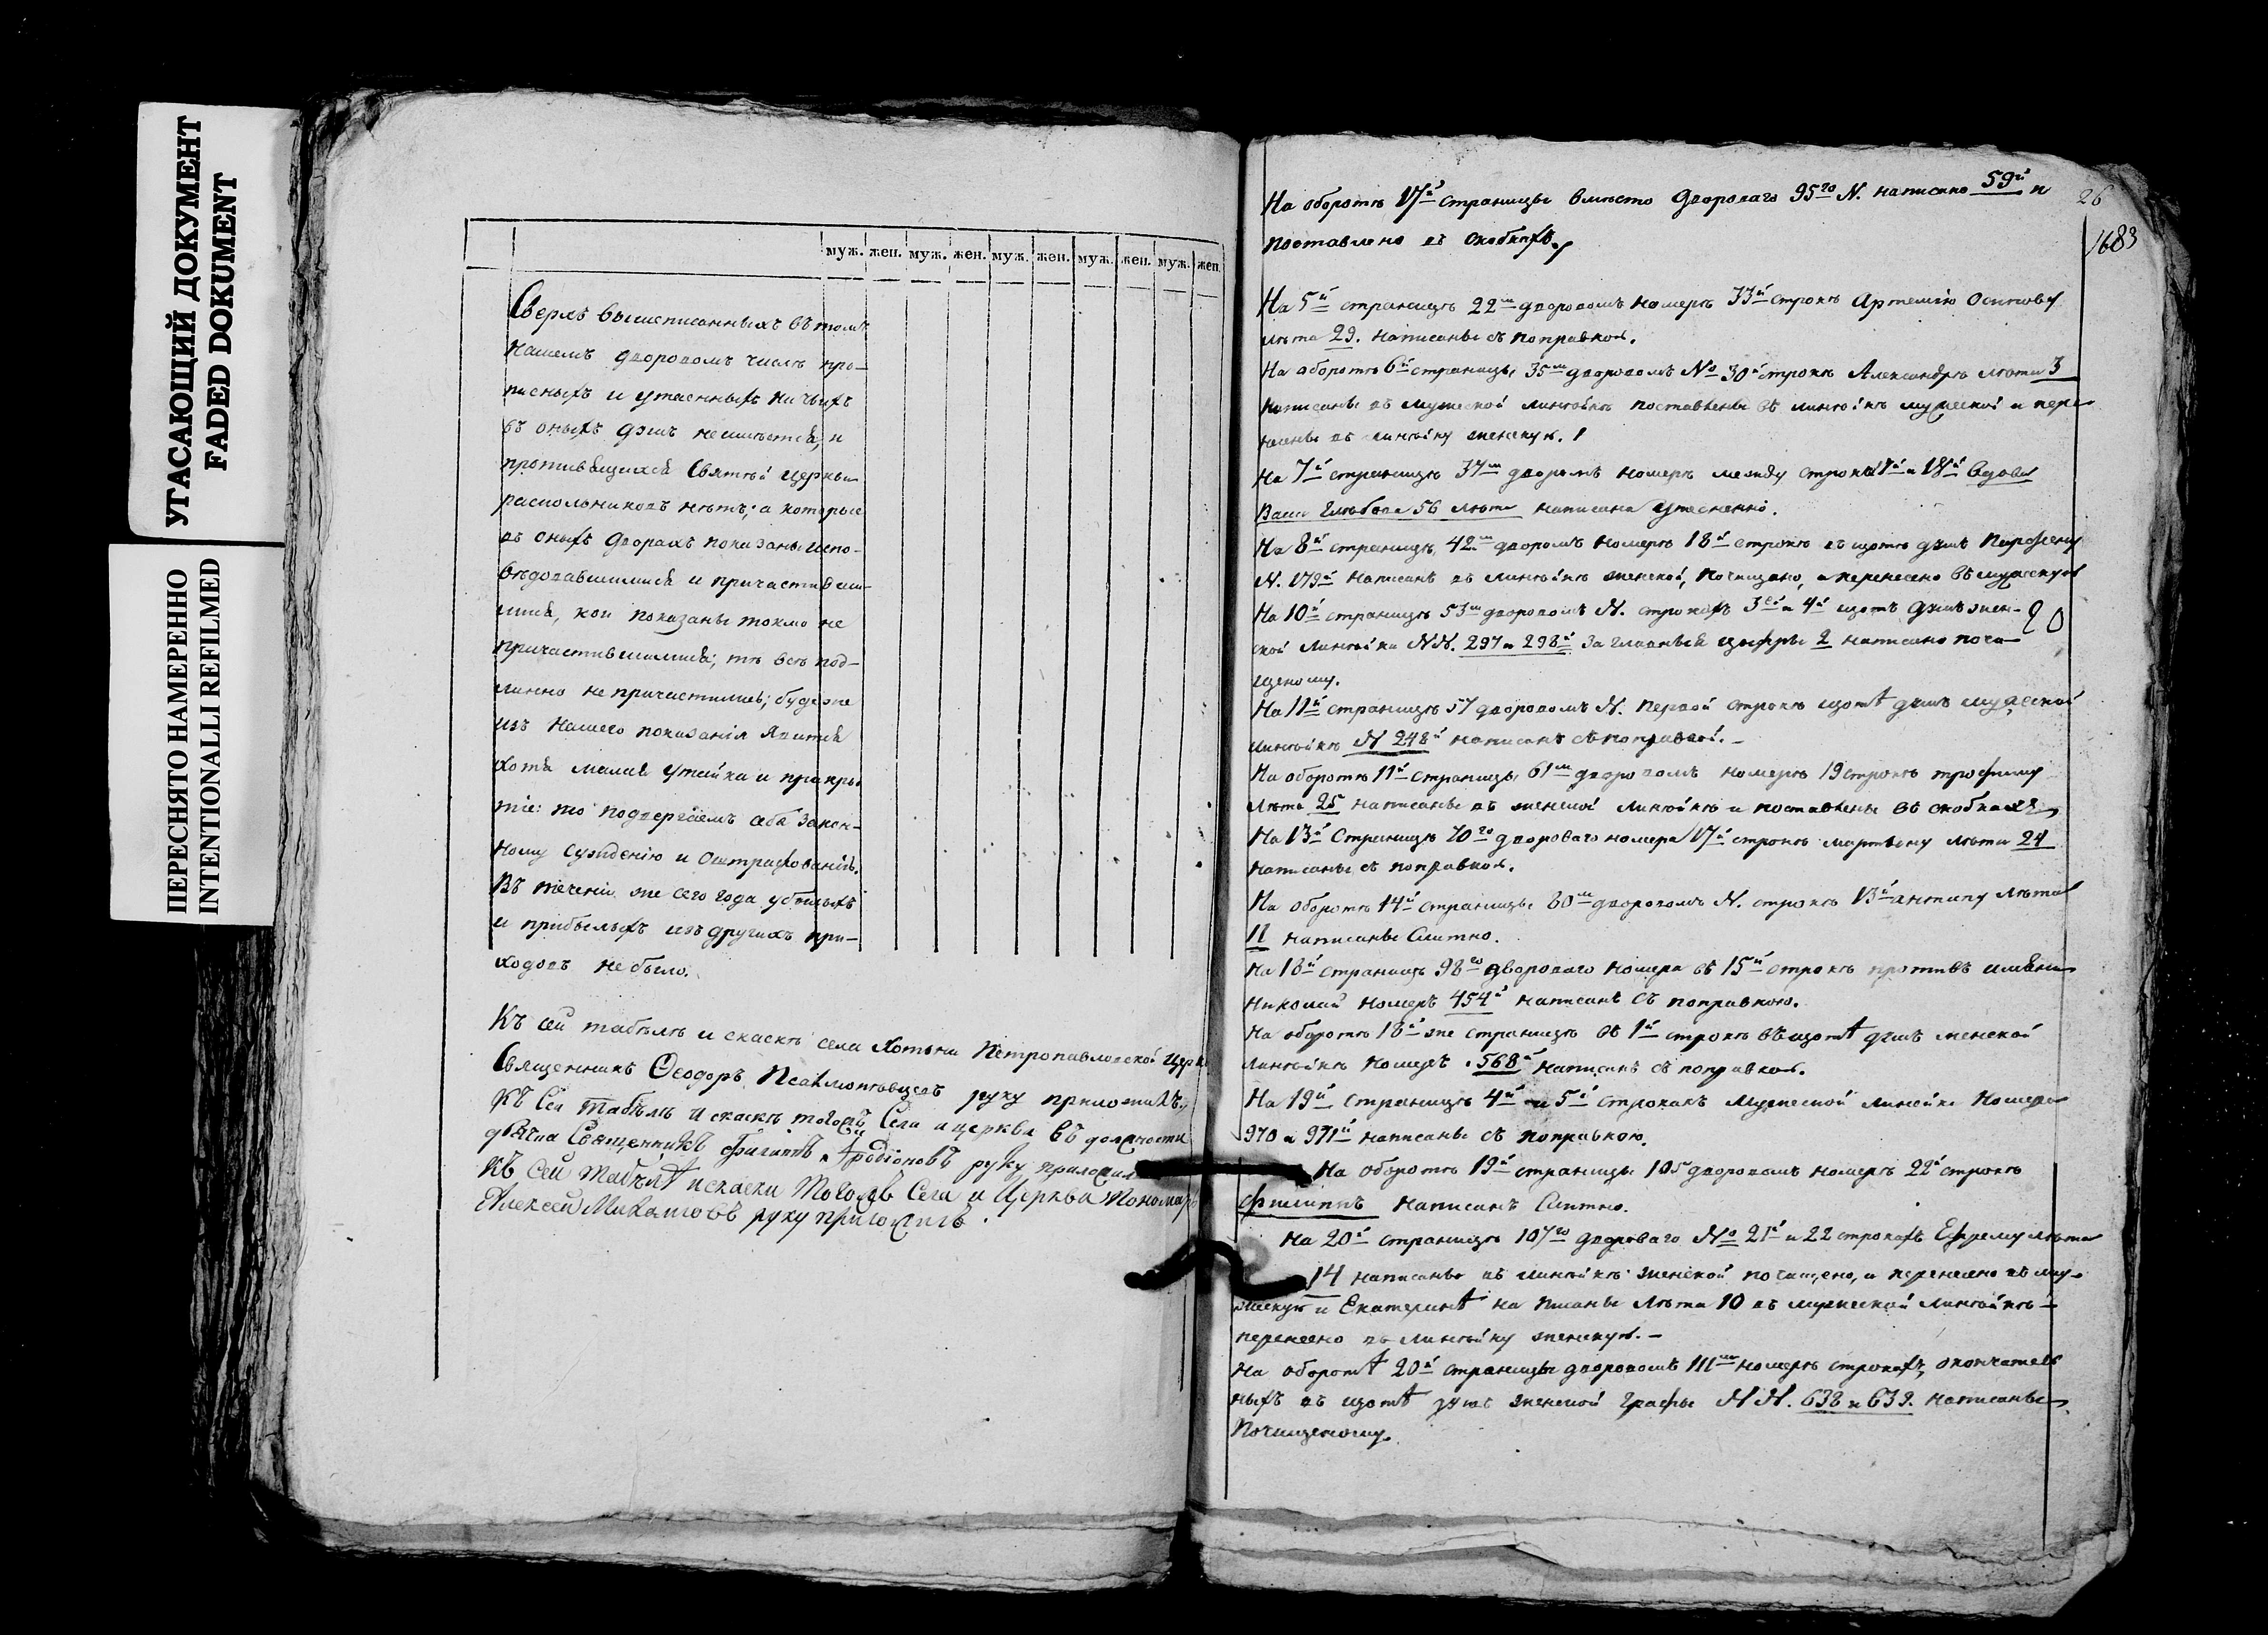 УГАСАЮЩИЙ ДОКУМЕНТ
FADED DOKUMENT
ПЕРЕСНЯТО НАМЕРЕННО
INTENTIONALLI REFILMED
муж. жен. муж. жен. муж. жен. муж. жен. муж. жен.
Сверхъ вышеписанныхъ въ томъ
нашемъ дворовомъ числѣ про-
писныхъ и утаенныхъ ничьихъ
въ оныхъ душъ неимѣется, и
противящихся Святѣй Церкви
раскольниковъ нѣтъ; а которые
въ оныхъ дворахъ показаны испо-
вѣдовавшимися и причастивши-
мися, кои показаны токмо не
причастившимися, тѣ всѣ под-
линно не причастились; буде же
изъ нашего показанія явится
хотя малая утайка и прикры-
тіе: то подвергаемъ себя закон-
ному сужденію и оштрафованію.
Въ теченіи же сего года убылыхъ
и прибылыхъ изъ другихъ при-
ходовъ не было.
Къ сей табелѣ и скаскѣ села Хотьни Петропавловской Церкви
Священникъ Ѳеодоръ руку приложилъ.
Къ сей табелѣ и скаскѣ тогожъ Села и церкви въ должности
дьячка Священникъ руку приложилъ
Къ сей табелѣ и скаски тогожъ Села и Церкви Пономарь
Алексей Михаиловъ руку приложилъ.
26
1683
На оборотѣ 17й страницы вмѣсто двороваго 95го N. написано 59й и
поставлено въ скобкахъ.
На 5й странице 22м дворовомъ номерѣ 33й строкѣ Артемію Осипову
лѣта 29. написаны съ поправкою.
На оборотѣ 6й страницы 35м дворовомъ No 30й строкѣ Александрѣ лѣта 3
написаны въ мужеской линѣйкѣ поставлены въ линѣйкѣ мужеской и пере-
несены въ линѣйку женскую.
На 7й страницѣ 37м дворовомъ номерѣ между строкъ 17й и 18й Вдова
Глѣбова 56 лѣта написана утесненно.
На 8й страницѣ 42м дворовомъ номерѣ 18й строкѣ въ щотѣ душъ
N. 179й написанъ въ линѣйкѣ женской, почищено, и перенесено въ мужескую
На 10й страницѣ 53м дворовомъ N. строкахъ 3й и 4й щотъ душъ жен-
ской линѣйки NN. 297 и 298й за главныя цыфры 2 написано почи-
щеному.
На 11й страницѣ 57 дворовомъ N. первой строкѣ щотѣ душъ мужеской
линѣйкѣ N 248й написанъ съ поправкой.
На оборотѣ 11й страницы 61м дворовомъ номерѣ 19 строкѣ трофиму
лѣта 25 написаны въ женской линѣйкѣ и поставлены въ скобкахъ
На 13й Страницѣ 70го двороваго номера 17й строкѣ мартыну лѣта 24
написаны съ поправкою.
На оборотѣ 14й страницы 80м дворовомъ N. строкѣ 13й антипу лѣта
11 написаны Слитно.
На 18й страницѣ 98го двороваго номера въ 15й строкѣ противъ имяни
Николай номеръ 454й написанъ съ поправкою.
На оборотѣ 18й же страницѣ въ 1й строкѣ въ щотѣ душъ женской
линѣйкѣ номеръ 568й написанъ съ поправкою.
На 19й страницѣ 4й и 5й строкахъ мужеской линейки Номера
970 и 971й написаны съ поправкою.
На оборотѣ 19й страницы 105 дворовомъ номерѣ 22й строкѣ
Филиппъ написанъ Слитно.
На 20й страницѣ 107го двороваго No 21й и 22 строкахъ Ефрему лѣта
14 написаны въ линѣйкѣ женской почищено, и перенесено въ му-
жескую и Екатеринѣ на писаны лѣта 10 въ мужеской линѣйкѣ
перенесено въ линѣйку женскую.
На оборотѣ 20й страницы дворовомъ 111м номерѣ строкахъ, окончатель
ныхъ въ щотѣ душъ женской графы NN. 638 и 639. написаны
Почищеному.